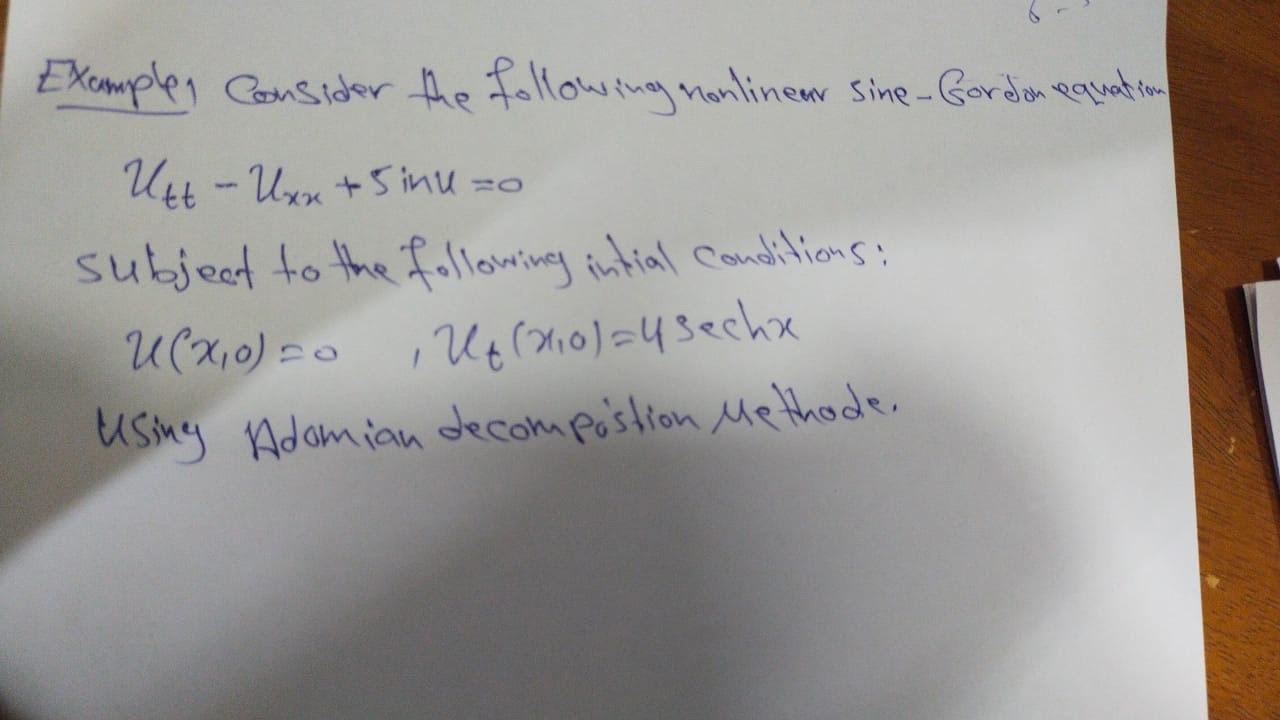 Example, Consider the following nonlinear sine-Gordon equation
Utt - Uxx + Sinu = 0
subject to the following intial Conditions:
U(x,0) = 0 , Ut(x,0) = 4 sechx
Using Adomian decompostion Methode.